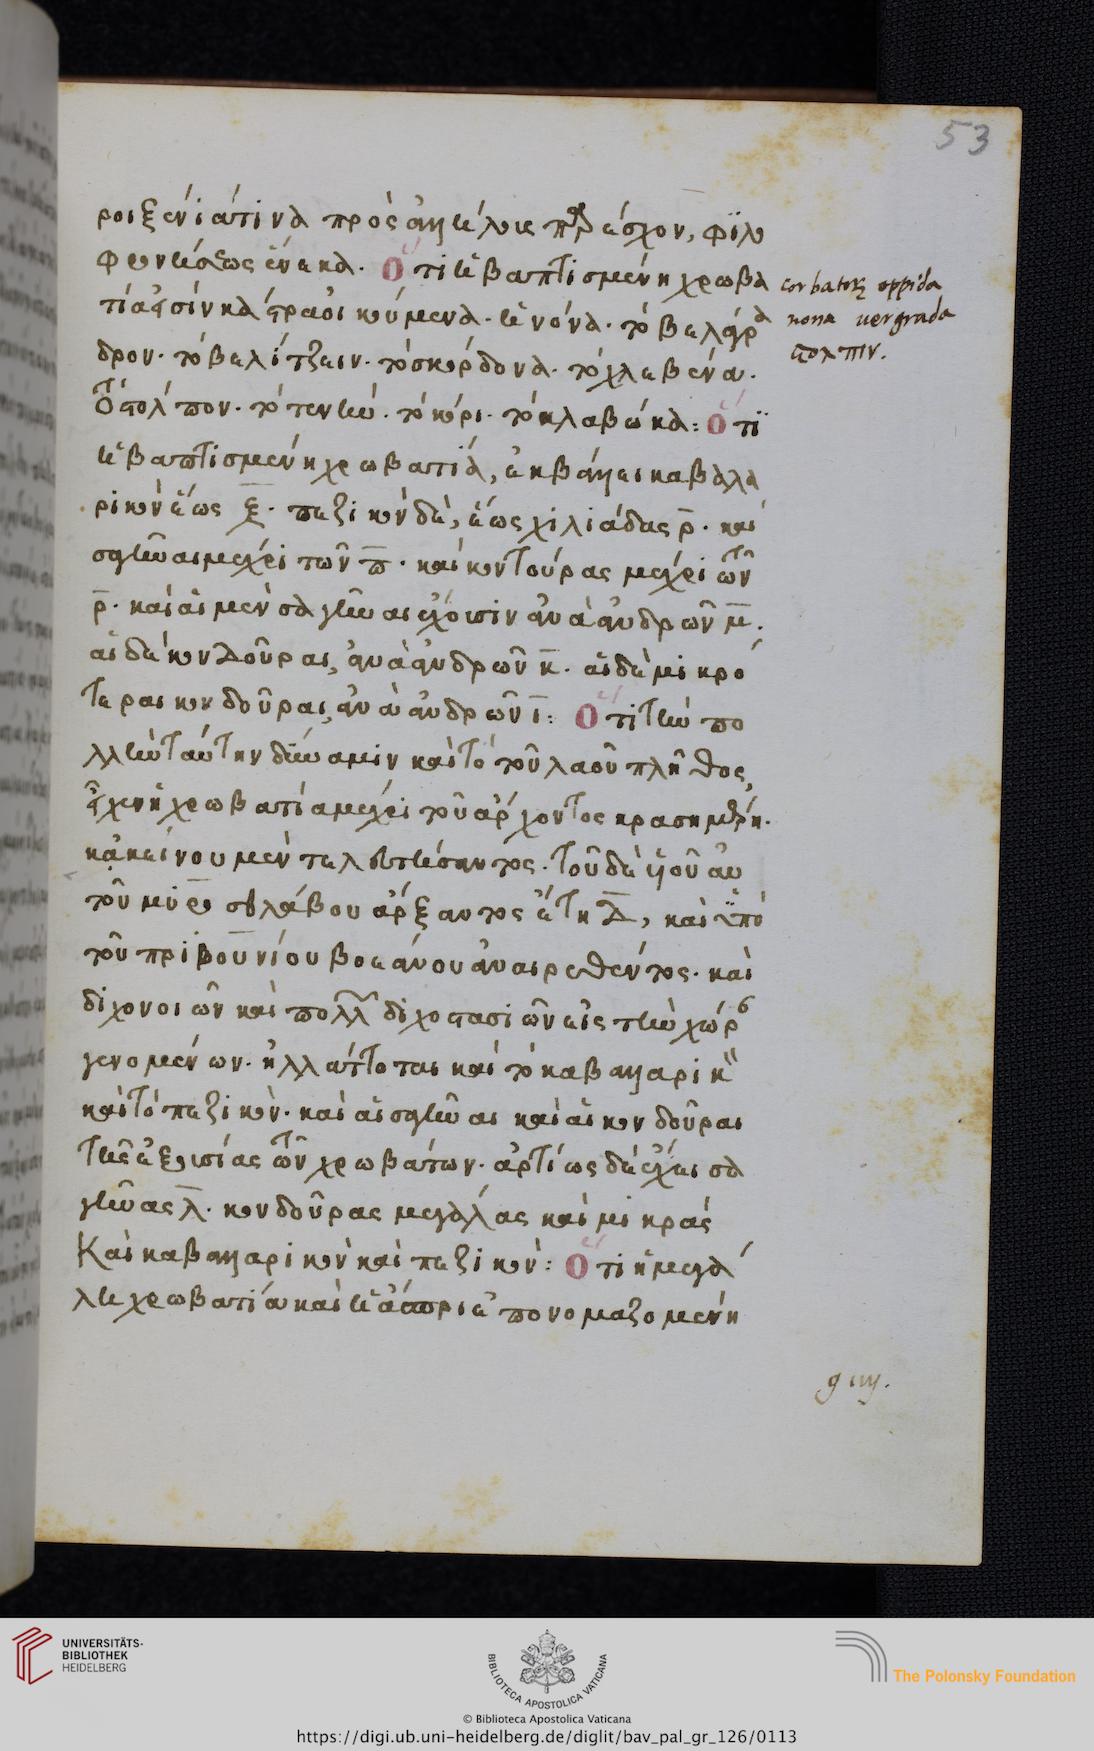 53
ροιξενίατινα πρὸς ἀλλήλους παρέσχον, φίλο
φρονήσεως ἕνεκα. Ὅτι ἡ βαπτισμένη χρωβα
τία εἰσὶν κάστρα οἰκούμενα. ἡ νόνα. τὸ βελόγρα
δρον. τὸ βελίτζειν. τὸ σκόρδονα. τὸ χλεβένα.
Τὸ στόλπον. τὸ τενήν. τὸ κόρι. τὸ κλαβώκα: Ὅτι
ἡ βαπτισμένη χρωβατία, ἐκβάλλει καβαλλα
ρικὸν ἕως ξ̅. πεζικὸν δὲ, ἕως χιλιάδας ρ̅. καὶ
σαγήνας μέχρι τῶν π̅. καὶ κοντούρας μέχρι τῶν
ρ̅. καὶ αἱ μὲν σαγῆναι ἔχουσιν ἀνὰ ἀνδρῶν μ̅.
αἱ δὲ κονδοῦραι, ἀνὰ ἀνδρῶν κ̅. αἱ δὲ μικρό
τεραι κονδοῦραι, ἀνὰ ἀνδρῶν ι̅: Ὅτι τὴν πο
λλὴν ταύτην δύναμιν καὶ τὸ τοῦ λαοῦ πλῆθος,
εἶχεν ἡ χρωβατία μέχρι τοῦ ἄρχοντος κρασημέρη.
κἀκείνου μὲν τελευτήσαντος. τοῦ δὲ υἱοῦ αὐ
τοῦ μιροσθλάβου ἄρξαντος ἔτη δ̅, καὶ ὑπὸ
τοῦ πριβουνίου βοεάνου ἀναιρεθέντος. καὶ
διχονοιῶν καὶ πολλῶν διχοστασιῶν εἰς τὴν χώραν
γενομένων. ἠλλάττοται καὶ τὸ καβαλλαρικὸν
καὶ τὸ πεζικὸν. καὶ αἱ σαγῆναι καὶ αἱ κονδοῦραι
τῆς ἐξουσίας τῶν χρωβάτων. ἀρτίως δὲ ἔχει σα
γήνας λ̅. κονδοῦρας μεγάλας καὶ μικρὰς
Καὶ καβαλλαρικὸν καὶ πεζικὸν: Ὅτι ἡ μεγά
λη χρωβατία καὶ ἡ ἄσπρη ἐπονομαζομένη
corbatorum oppida
nona vergrada
στολπιν.
UNIVERSITÄTS-
BIBLIOTHEK
HEIDELBERG
BIBLIOTECA APOSTOLICA VATICANA
The Polonsky Foundation
© Biblioteca Apostolica Vaticana
https://digi.ub.uni-heidelberg.de/diglit/bav_pal_gr_126/0113